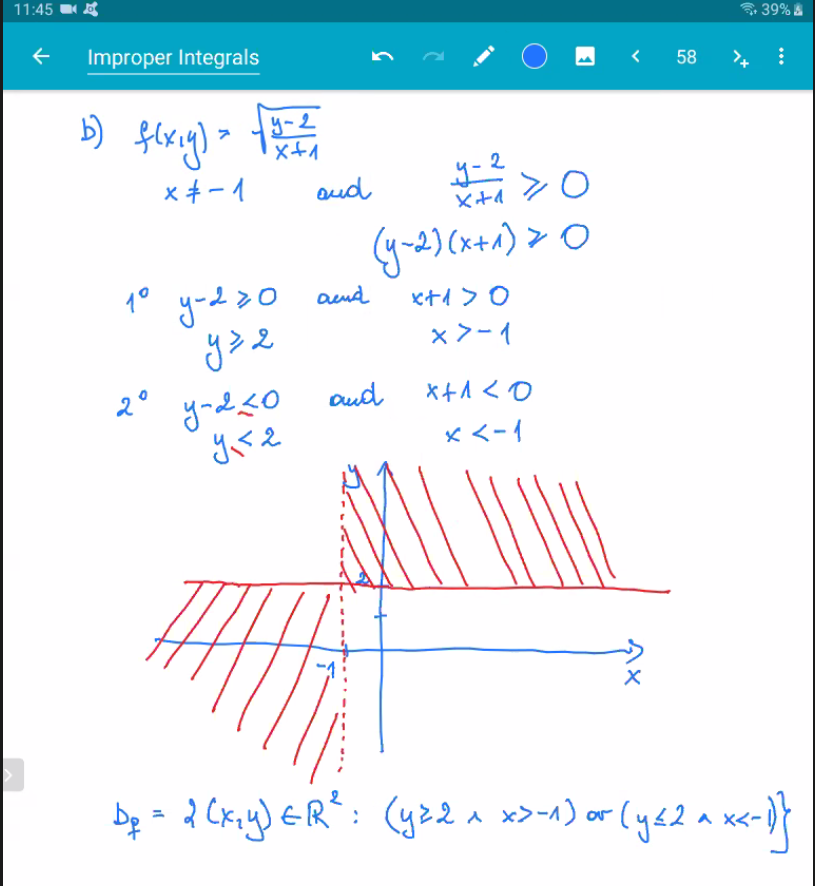 11:45 39%
Improper Integrals 58
b) f(x,y) = √((y-2)/(x+1))
x ≠ -1 and (y-2)/(x+1) ⩾ 0
(y-2)(x+1) ⩾ 0
1° y-2 ⩾ 0 and x+1 > 0
y ⩾ 2 x > -1
2° y-2 ≤ 0 and x+1 < 0
y ≤ 2 x < -1
y
2
-1
x
D_f = {(x,y) ∈ ℝ² : (y ≥ 2 ∧ x > -1) or (y ≤ 2 ∧ x < -1)}